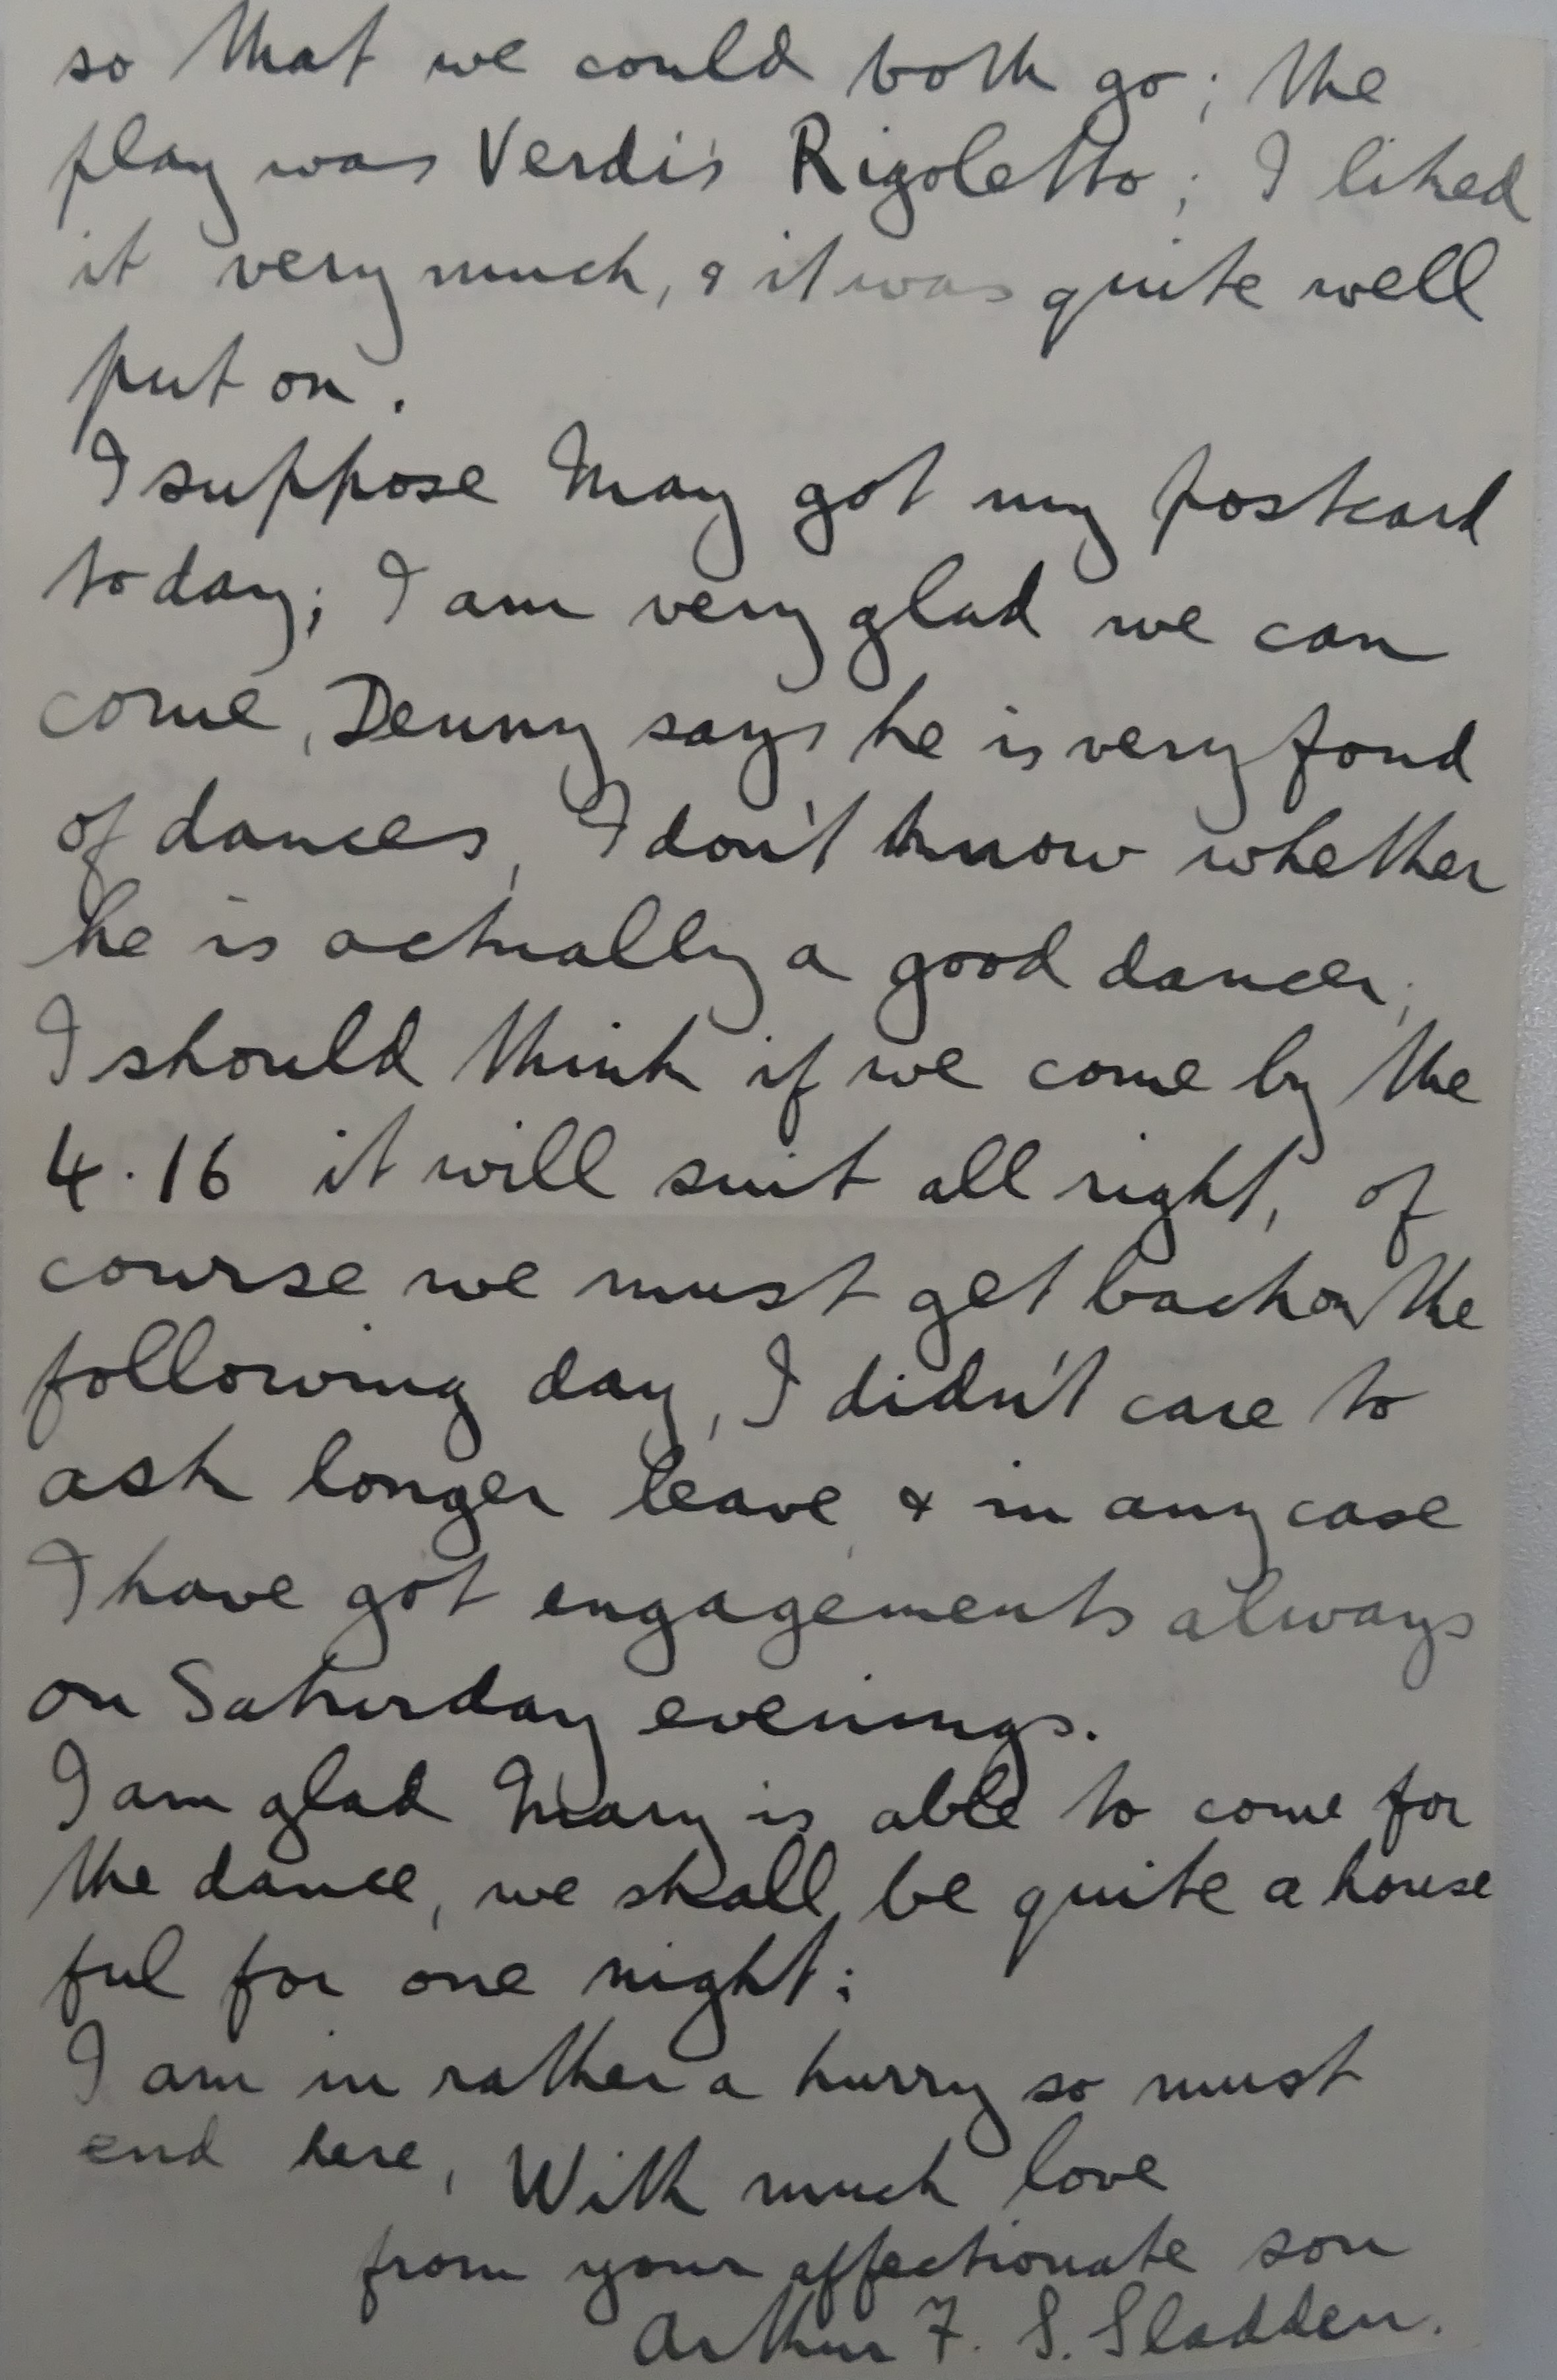 so that we could both go; the
play was Verdi's Rigoletto; I liked
it very much, & it was quite well
put on.
I suppose May got my postcard
today; I am very glad we can
come, Denny says he is very fond
of dances, I don't know whether
he is actually a good dancer;
I should think if we come by the
4.16 it will suit all right, of
course we must get back on the
following day, I didn't care to
ask longer leave & in any case
I have got engagements always
on Saturday evenings.
I am glad Mary is able to come for
the dance, we shall be quite a house
ful for one night;
I am in rather a hurry so must
end here, With much love
from your affectionate son
Arthur F. S. Sladden.